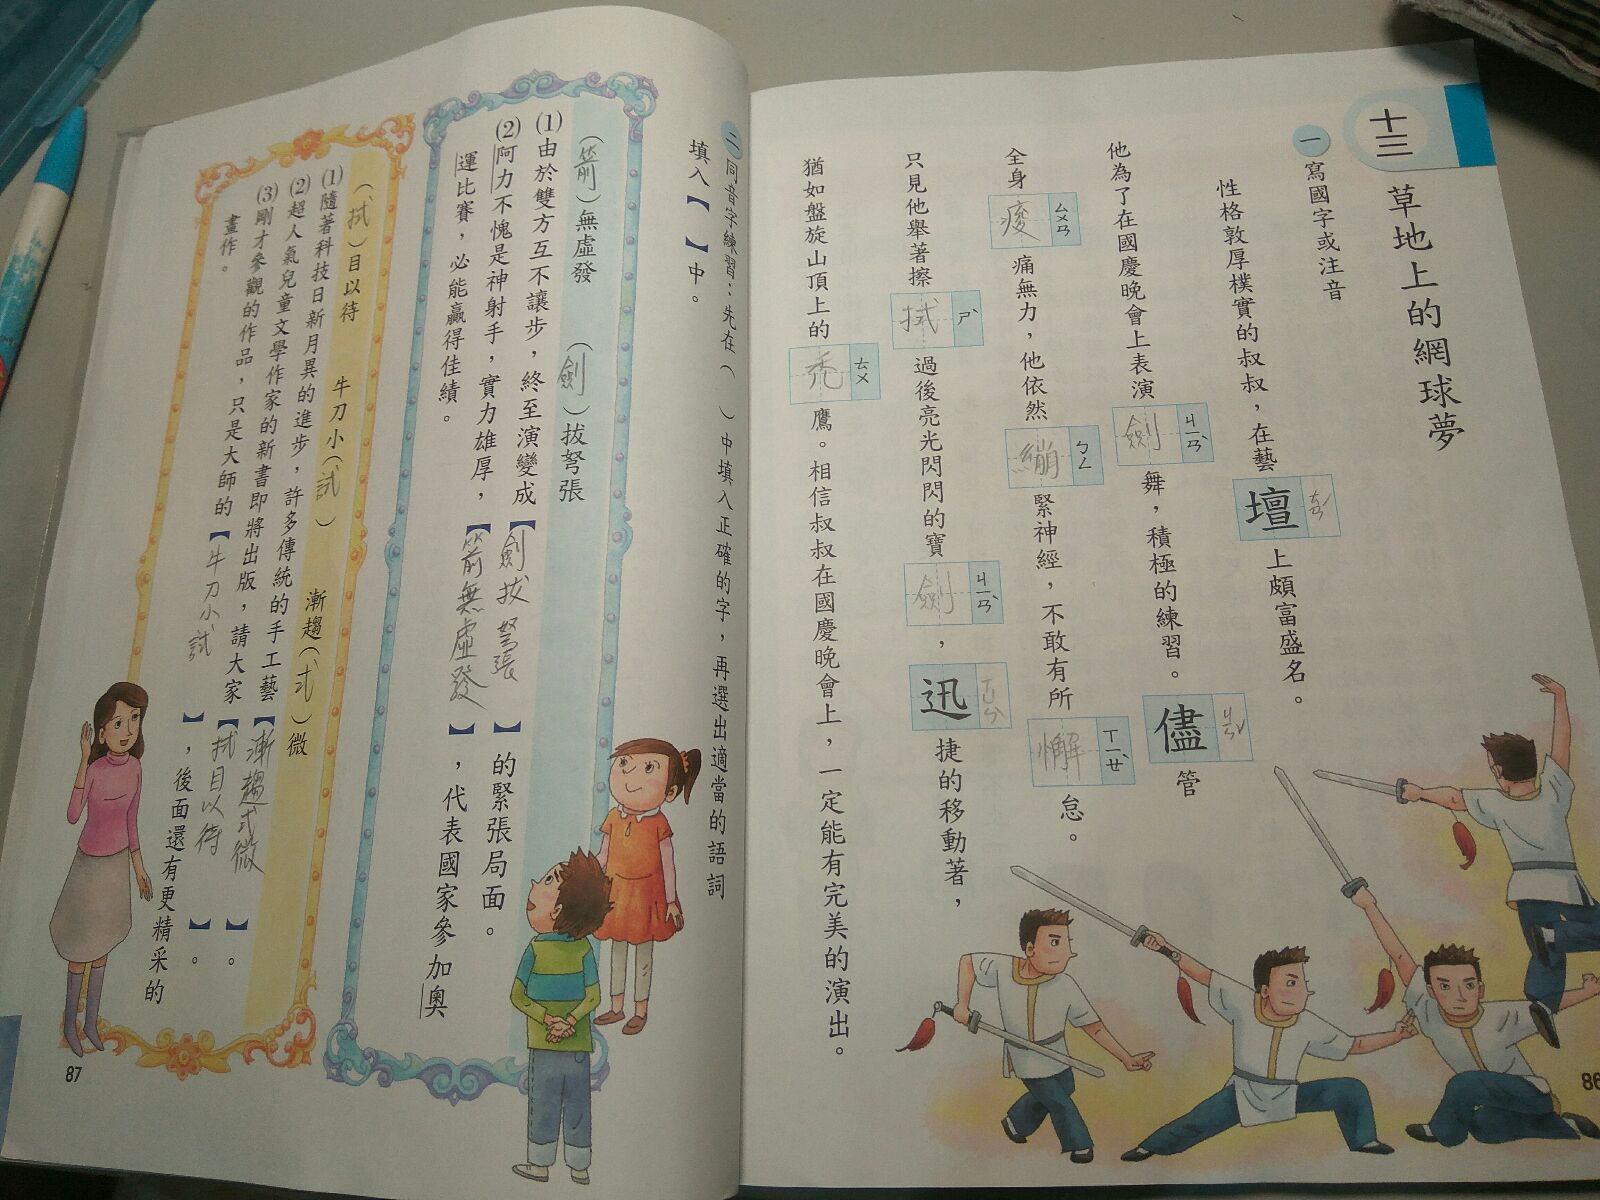 十三 草地上的網球夢
一 寫國字或注音
性格敦厚樸實的叔叔，在藝壇ㄊㄢˊ上頗富盛名。
他為了在國慶晚會上表演劍ㄐㄧㄢˋ舞，積極的練習。儘ㄐㄧㄣˇ管
全身痠ㄙㄨㄢ痛無力，他依然繃ㄅㄥ緊神經，不敢有所懈ㄒㄧㄝˋ怠。
只見他舉著擦拭ㄕˋ過後亮光閃閃的寶劍ㄐㄧㄢˋ，迅ㄒㄩㄣˋ捷的移動著，
猶如盤旋山頂上的禿ㄊㄨ鷹。相信叔叔在國慶晚會上，一定能有完美的演出。
86
二 同音字練習：先在（ ）中填入正確的字，再選出適當的語詞
填入【 】中。
（箭）無虛發 （劍）拔弩張
⑴由於雙方互不讓步，終至演變成【劍拔弩張】的緊張局面。
⑵阿力不愧是神射手，實力雄厚，【箭無虛發】，代表國家參加奧
運比賽，必能贏得佳績。
（拭）目以待 牛刀小（試） 漸趨（式）微
⑴隨著科技日新月異的進步，許多傳統的手工藝【漸趨式微】。
⑵超人氣兒童文學作家的新書即將出版，請大家【拭目以待】。
⑶剛才參觀的作品，只是大師的【牛刀小試】，後面還有更精采的
畫作。
87